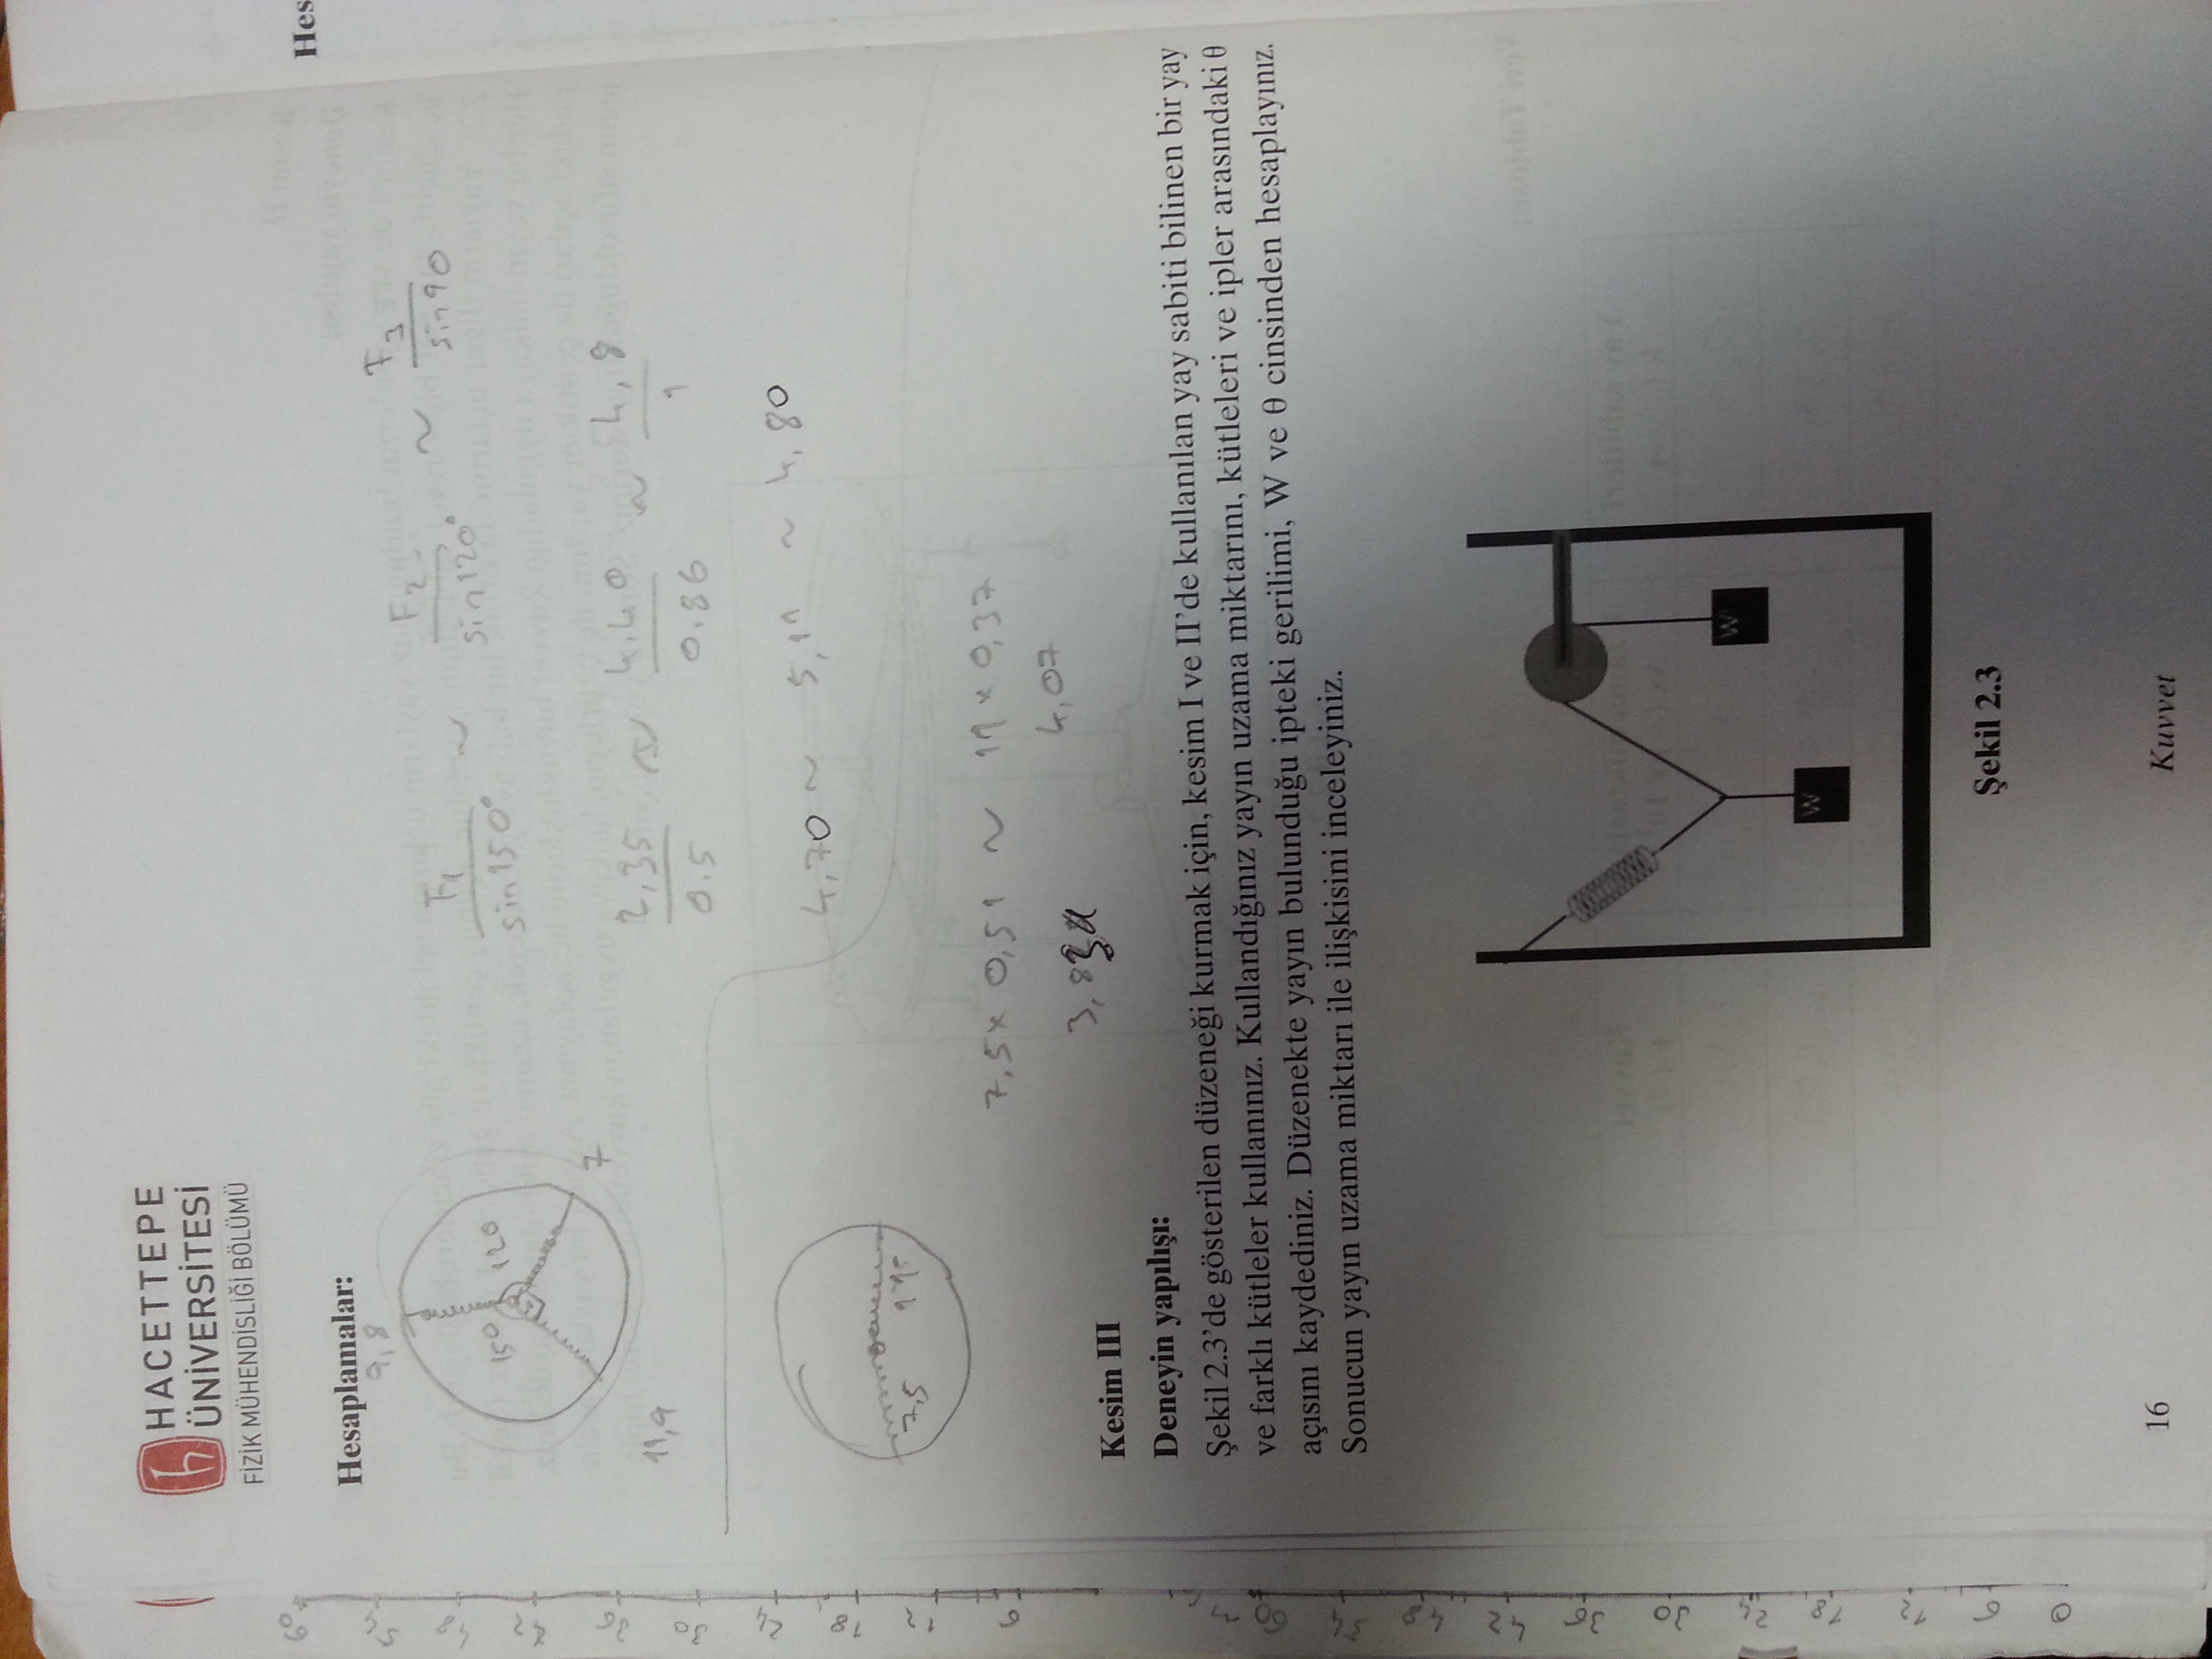 HACETTEPE
ÜNİVERSİTESİ
FİZİK MÜHENDİSLİĞİ BÖLÜMÜ
Hes
Hesaplamalar:
9,8
150 120
7
11,9
F1/sin150° ~ F2/sin120° ~ F3/sin90
2,35/0.5 ~ 4.40/0.86 ~ 4,8/1
4,70 ~ 5,11 ~ 4,80
7,5
7,5x 0,51 ~ 11 x 0,37
4,07
Kesim III
Deneyin yapılışı:
Şekil 2.3’de gösterilen düzeneği kurmak için, kesim I ve II’de kullanılan yay sabiti bilinen bir yay
ve farklı kütleler kullanınız. Kullandığınız yayın uzama miktarını, kütleleri ve ipler arasındaki θ
açısını kaydediniz. Düzenekte yayın bulunduğu ipteki gerilimi, W ve θ cinsinden hesaplayınız.
Sonucun yayın uzama miktarı ile ilişkisini inceleyiniz.
W'
W
Şekil 2.3
16
Kuvvet
60
54
48
42
36
30
24
18
12
6
60
54
48
42
36
30
24
18
12
6
0